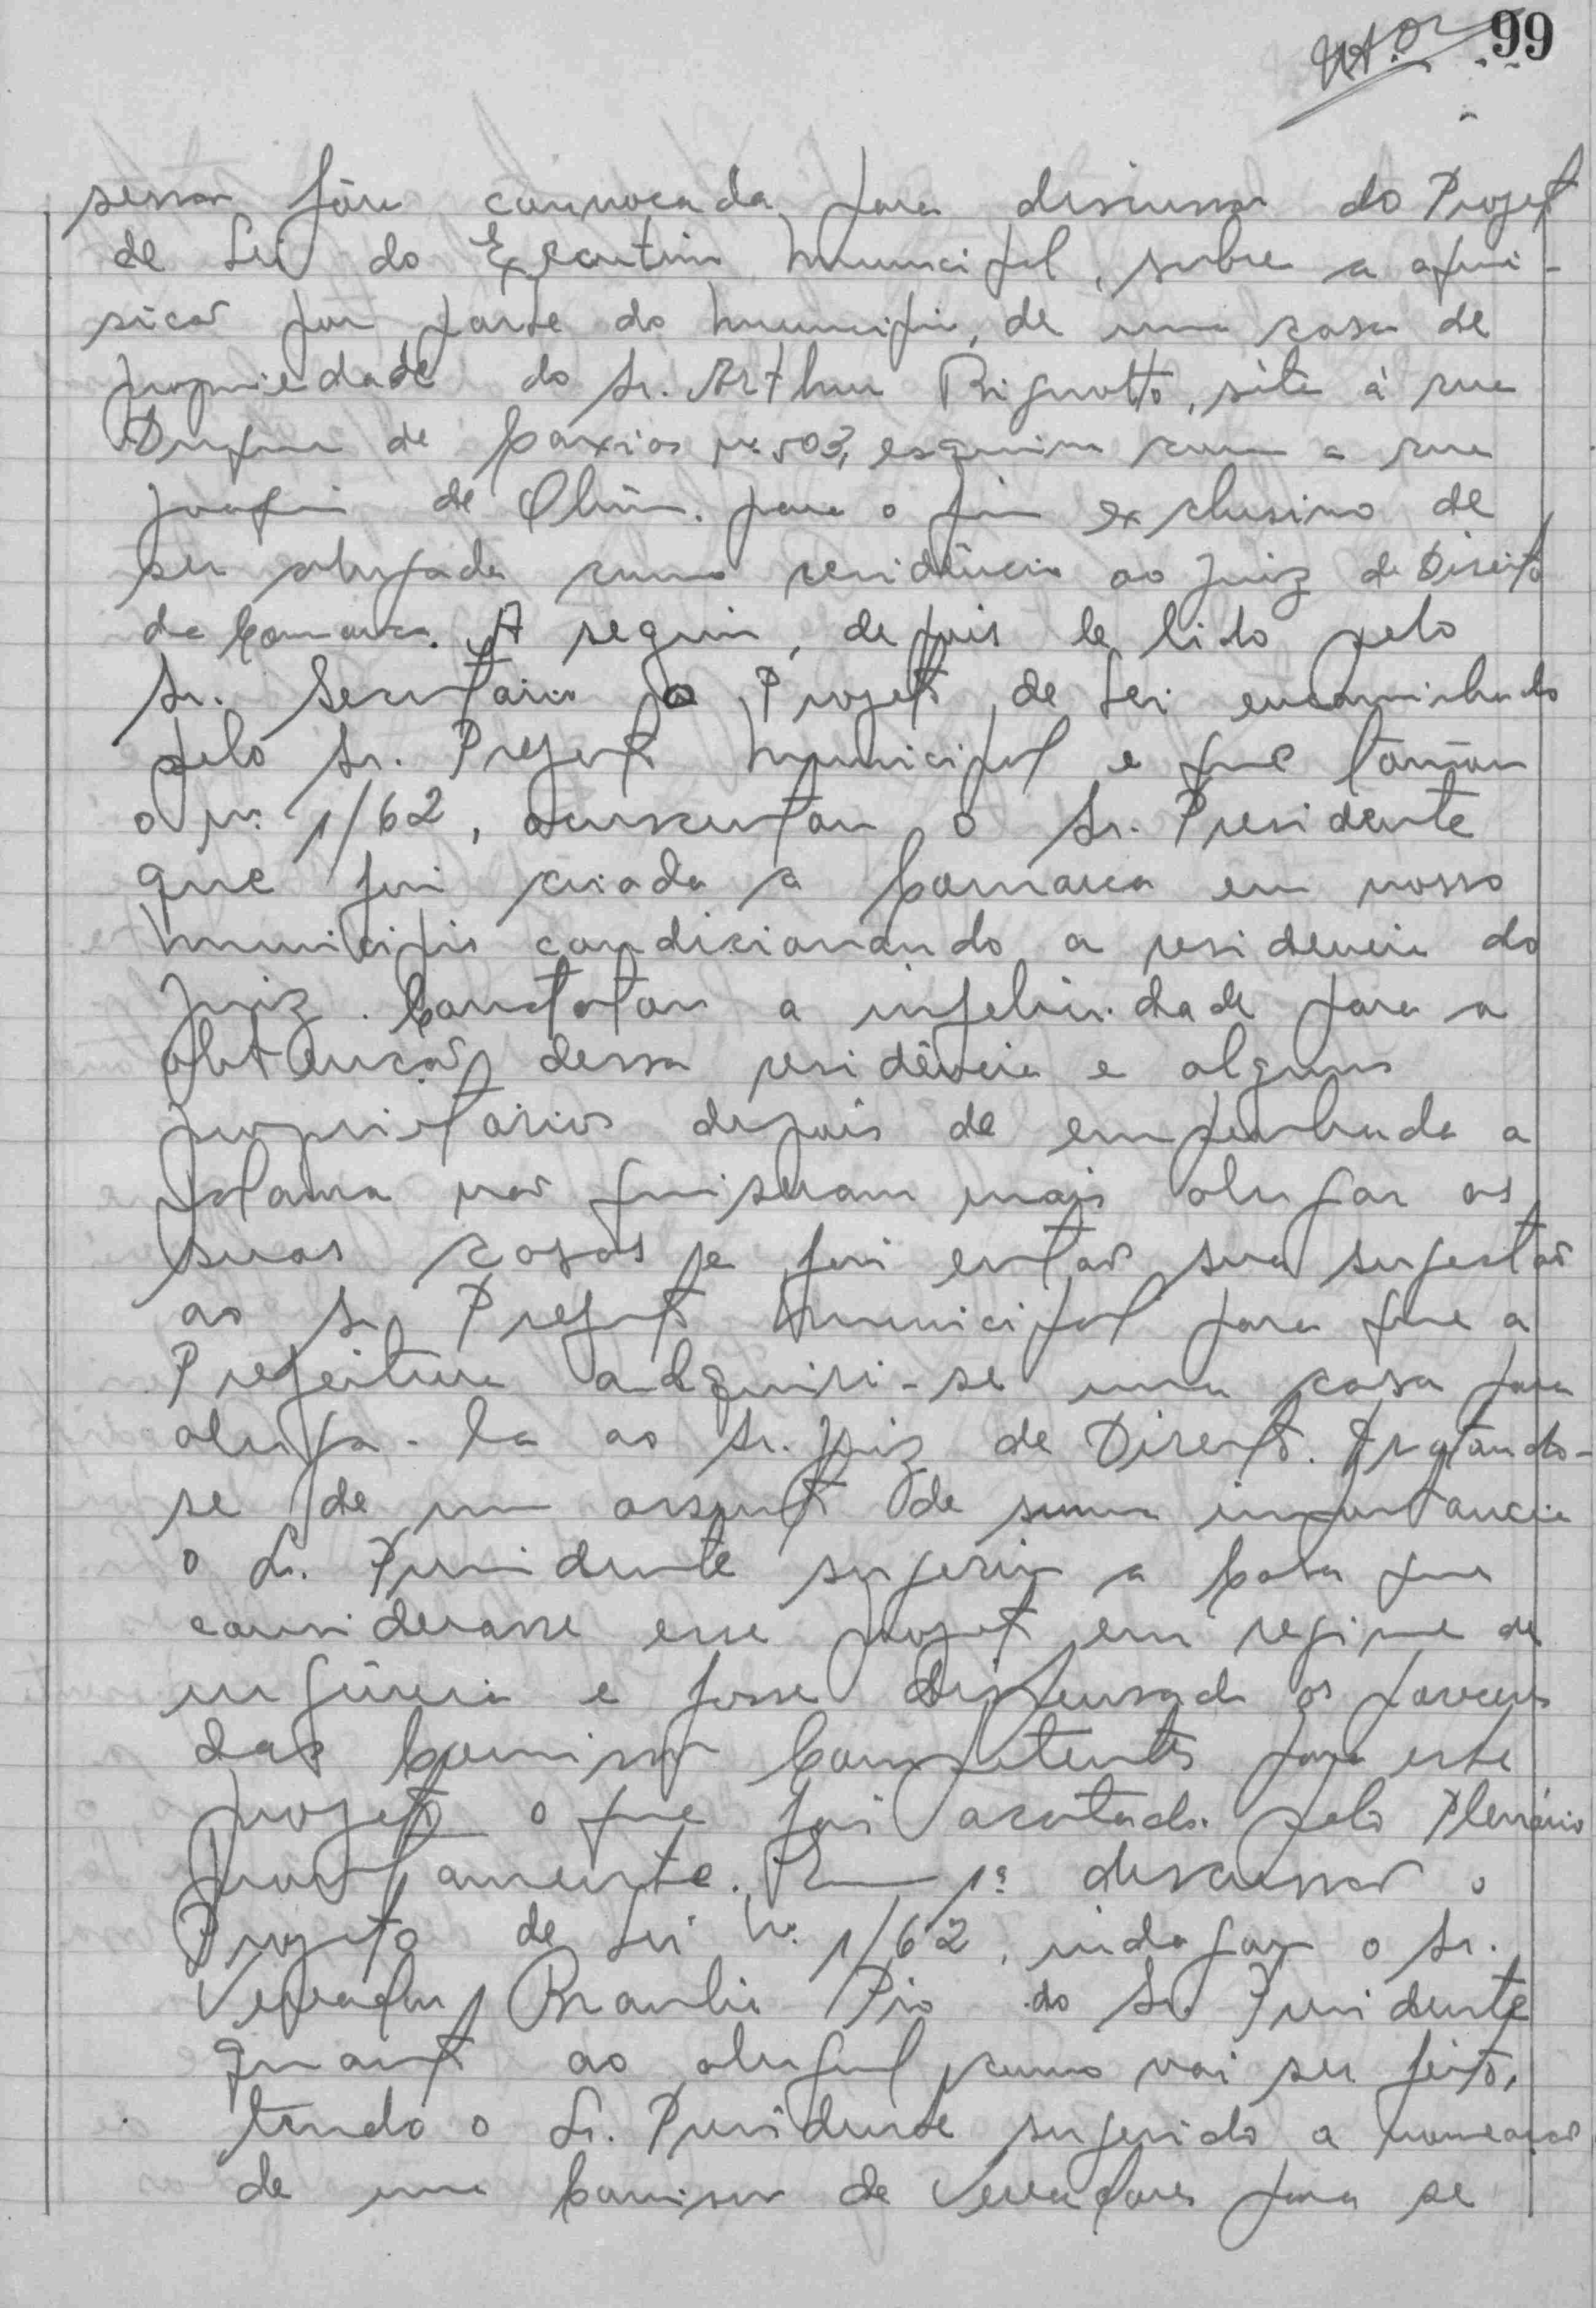 99
sessão fôra convocada para discussão do Projeto
de Lei do Executivo Municipal, sobre a aqui-
sição por parte do Municipio, de uma casa de
propriedade do Sr. Arthur Rignotto, sita á rua
Duque de Caxias nº 503, esquina com a rua
de para o fim exclusivo de
ser alugada como residência ao Juiz de Direito
da Comarca. A seguir, depois de lido pelo
Sr. Secretário o Projeto de Lei encaminhado
pelo Sr. Prefeito Municipal e que tomou
o nº 1/62, acrescentou o Sr. Presidente
que foi criada a Comarca em nosso
Municipio condicionando a residencia do
Juiz. Constatou a infelicidade para a
obtenção dessa residência e alguns
proprietários depois de empenhada a
palavra não quiseram mais alugar as
suas casas e foi então sua sugestão
ao Sr. Prefeito Municipal para que a
Prefeitura adquiri-se uma casa para
aluga-la ao Sr. Juiz de Direito. Tratando-
se de um assunto de suma importancia
o Sr. Presidente sugeriu a Casa que
considerasse esse projeto em regime de
urgência e fosse dispensado os pareceres
das Comissão Competentes para este
projeto o que foi acatado pelo Plenário
prontamente. Em 1ª discussão o
Projeto de Lei nº 1/62, indagou o Sr.
Vereador Braulio Pio do Sr. Presidente
quanto ao aluguel como vai ser feito,
tendo o Sr. Presidente sugerido a nomeação
de uma Comissão de Vereadores para se